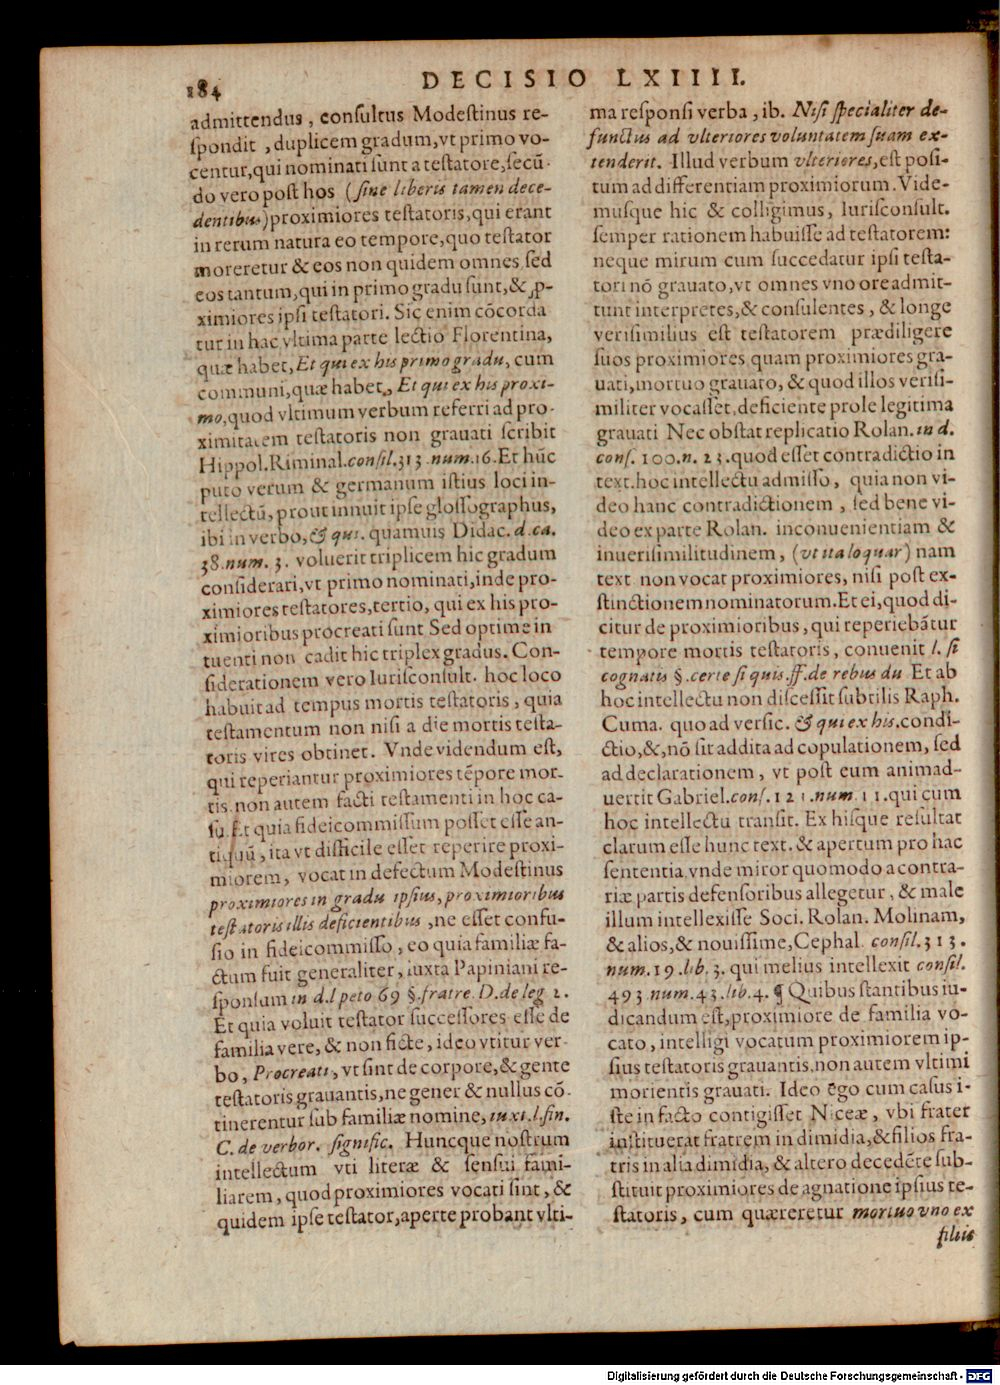 184
DECISIO LXIIII.
admittendus, consultus Modestinus re-
spondit, duplicem gradum, vt primo vo-
centur, qui nominati sunt a testatore, secũ-
do vero post hos (sine liberis tamen dece-
dentibus) proximiores testatoris, qui erant
in rerum natura eo tempore, quo testator
moreretur & eos non quidem omnes sed
eos tantum, qui in primo gradu sunt, & ꝓ-
ximiores ipsi testatori. Sic enim cõcorda
tur in hac vltima parte lectio Florentina,
quæ habet, Et qui ex his primo gradu, cum
communi, quæ habet, Et qui ex his proxi-
mo, quod vltimum verbum referri ad pro-
ximitatem testatoris non grauati scribit
Hippol. Riminal. consil. 313. num. 16. Et hũc
puto verum & germanum istius loci in-
tellectũ, prout innuit ipse glossographus,
ibi in verbo, & qui. quamuis Didac. d. ca.
38. num. 3. voluerit triplicem hic gradum
considerari, vt primo nominati, inde pro-
ximiores testatores, tertio, qui ex his pro-
ximioribus procreati sunt Sed optime in
tuenti non cadit hic triplex gradus. Con-
siderationem vero Iurisconsult. hoc loco
habuit ad tempus mortis testatoris, quia
testamentum non nisi a die mortis testa-
toris vires obtinet. Vnde videndum est,
qui reperiantur proximiores tẽpore mor-
tis, non autem facti testamenti in hoc ca-
su. Et quia fideicommissum posset esse an-
tiquũ, ita vt difficile esset reperire proxi-
miorem, vocat in defectum Modestinus
proximiores in gradu ipsius, proximioribus
testatoris illis deficientibus, ne esset confu-
sio in fideicommisso, eo quia familiæ fa-
ctum fuit generaliter, iuxta Papiniani re-
sponsum in d. l peto 69 §. fratre. D. de leg 2.
Et quia voluit testator successores esse de
familia vere, & non ficte, ideo vtitur ver-
bo, Procreati, vt sint de corpore, & gente
testatoris grauantis, ne gener & nullus cõ-
tinerentur sub familiæ nomine, iuxt. l. fin.
C. de verbor. signific. Huncque nostrum
intellectum vti literæ & sensui fami-
liarem, quod proximiores vocati sint, &
quidem ipse testator, aperte probant vlti-
ma responsi verba, ib. Nisi specialiter de-
functus ad vlteriores voluntatem suam ex-
tenderit. Illud verbum vlteriores, est posi-
tum ad differentiam proximiorum. Vide-
musque hic & colligimus, Iurisconsult.
semper rationem habuisse ad testatorem:
neque mirum cum succedatur ipsi testa-
tori nõ grauato, vt omnes vno ore admit-
tunt interpretes, & consulentes, & longe
verisimilius est testatorem prædiligere
suos proximiores quam proximiores gra-
uati, mortuo grauato, & quod illos verisi-
militer vocasset, deficiente prole legitima
grauati Nec obstat replicatio Rolan. in d.
cons. 100. n. 23. quod esset contradictio in
text. hoc intellectu admisso, quia non vi-
deo hanc contradictionem, sed bene vi-
deo ex parte Rolan. inconuenientiam &
inuerisimilitudinem, (vt ita loquar) nam
text. non vocat proximiores, nisi post ex-
stinctionem nominatorum. Et ei, quod di-
citur de proximioribus, qui reperiebãtur
tempore mortis testatoris, conuenit l. si
cognatis §. certe si quis. ff. de rebus du Et ab
hoc intellectu non discessit subtilis Raph.
Cuma. quo ad versic. & qui ex his. condi-
ctio, &, nõ sit addita ad copulationem, sed
ad declarationem, vt post eum animad-
uertit Gabriel. cons. 121. num. 11. qui cum
hoc intellectu transit. Ex hisque resultat
clarum esse hunc text. & apertum pro hac
sententia vnde miror quomodo a contra-
riæ partis defensoribus allegetur, & male
illum intellexisse Soci. Rolan. Molinam,
& alios, & nouissime, Cephal. consil. 313.
num. 19. lib. 3. qui melius intellexit consil.
493 num. 43. lib. 4. ¶ Quibus stantibus iu-
dicandum est, proximiore de familia vo-
cato, intelligi vocatum proximiorem ip-
sius testatoris grauantis, non autem vltimi
morientis grauati. Ideo ego cum casus i-
ste in facto contigisset Niceæ, vbi frater
instituerat fratrem in dimidia, & filios fra-
tris in alia dimidia, & altero decedẽte sub-
stituit proximiores de agnatione ipsius te-
statoris, cum quæreretur mortuo vno ex
filiis
Digitalisierung gefördert durch die Deutsche Forschungsgemeinschaft - DFG